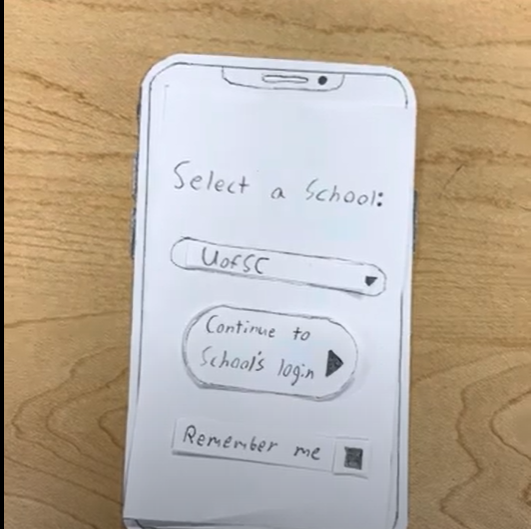 Select a School:
UofSC
Continue to
School's login
Remember me